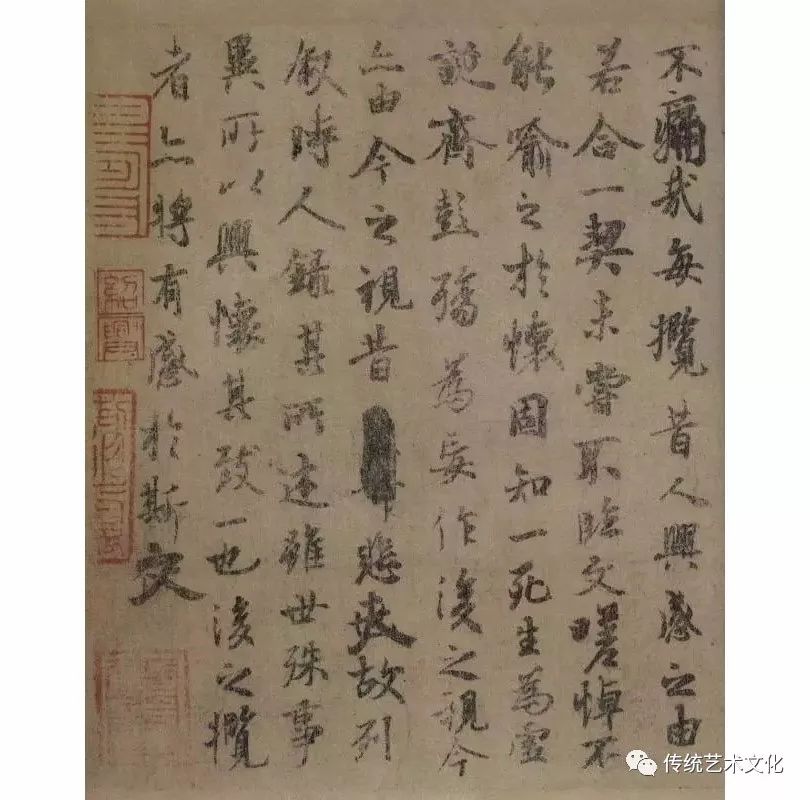 不痛哉每攬昔人興感之由
若合一契未嘗不臨文嗟悼不
能喻之於懷固知一死生為虛
誕齊彭殤為妄作後之視今
亦由今之視昔悲夫故列
叙時人錄其所述雖世殊事
異所以興懷其致一也後之攬
者亦將有感於斯文
紹興
传统艺术文化